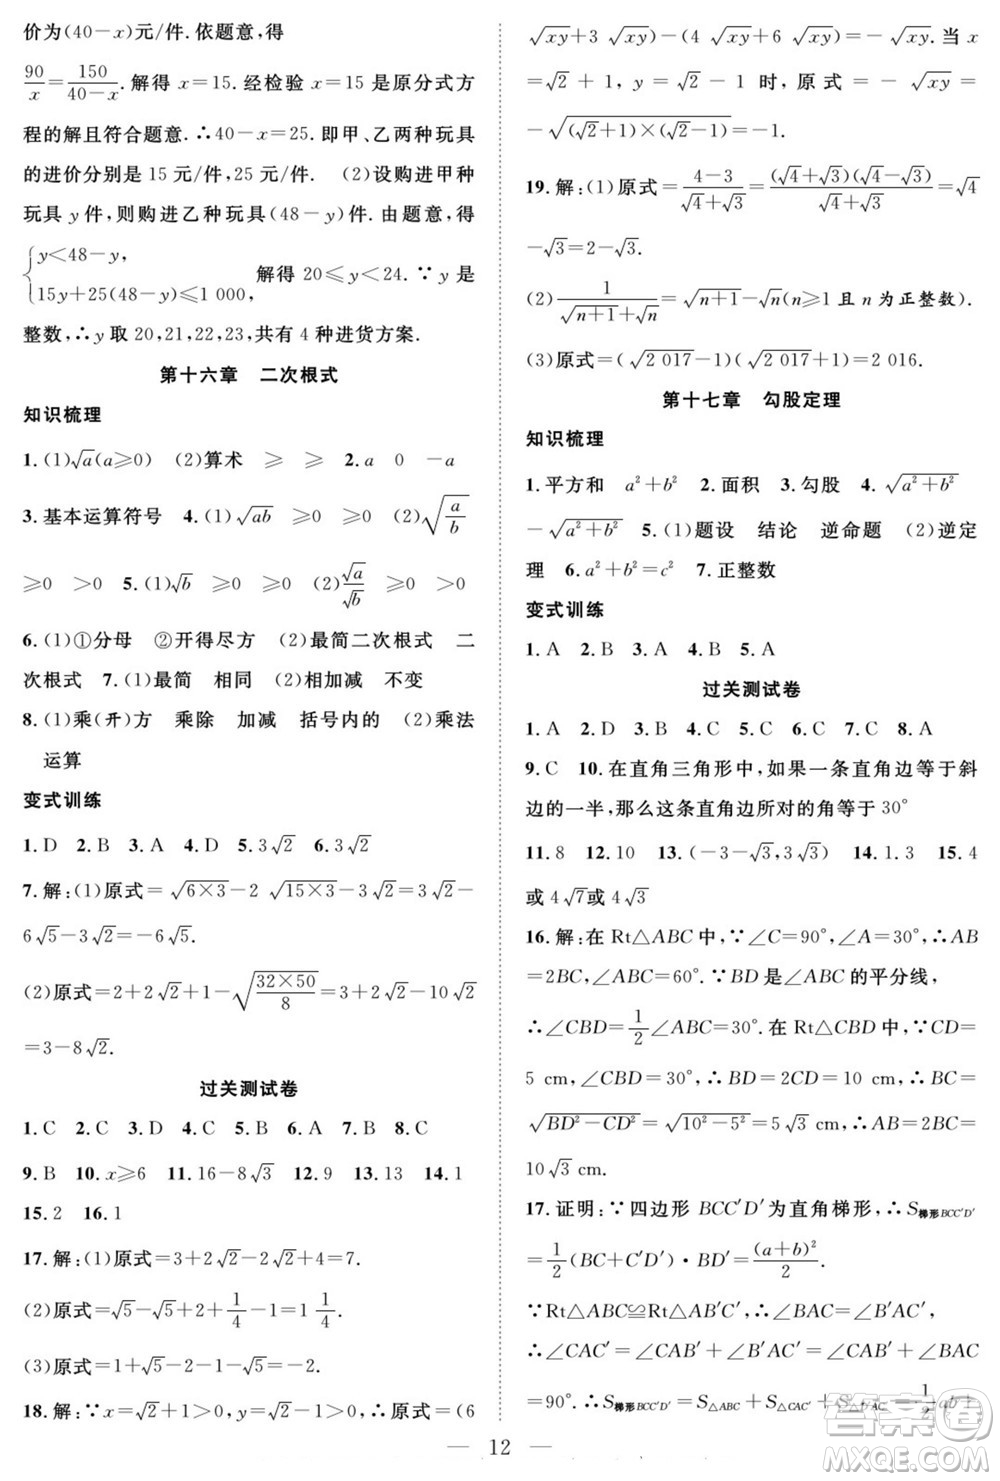 价为(40－x)元/件.依题意,得
90/x=150/(40－x).解得 x=15.经检验 x=15 是原分式方
程的解且符合题意.∴40－x=25.即甲、乙两种玩具
的进价分别是 15 元/件,25 元/件. (2)设购进甲种
玩具 y 件,则购进乙种玩具(48－y)件.由题意,得
{y<48－y,
15y+25(48－y)≤1 000, 解得 20≤y<24.∵y 是
整数,∴y 取 20,21,22,23,共有 4 种进货方案.
第十六章 二次根式
知识梳理
1.(1)√a(a≥0) (2)算术 ≥ ≥ 2.a 0 －a
3.基本运算符号 4.(1)√ab ≥0 ≥0 (2)√(a/b)
≥0 >0 5.(1)√b ≥0 ≥0 (2)√a/√b ≥0 >0
6.(1)①分母 ②开得尽方 (2)最简二次根式 二
次根式 7.(1)最简 相同 (2)相加减 不变
8.(1)乘(开)方 乘除 加减 括号内的 (2)乘法
运算
变式训练
1.D 2.B 3.A 4.D 5.3√2 6.3√2
7.解:(1)原式=√(6×3)－2 √(15×3)=3√2－
6√5－3√2=－6√5.
(2)原式=2+2√2+1－√(32×50/8)=3+2√2－10√2
=3－8√2.
过关测试卷
1.C 2.C 3.D 4.C 5.B 6.A 7.B 8.C
9.B 10.x≥6 11.16－8√3 12.9 13.13 14.1
15.2 16.1
17.解:(1)原式=3+2√2－2√2+4=7.
(2)原式=√5－√5+2+1/4－1=1 1/4.
(3)原式=1+√5－√5－3=－2.
18.解:∵x=√2+1>0,y=√2－1>0,∴原式=(6
√xy+3 √xy)－(4 √xy+6 √xy)=－√xy.当 x
=√2+1, y=√2－1 时, 原式=－√xy=
－√((√2+1)×(√2－1))=－1.
19.解:(1)原式=(4－3)/(√4+√3)=(√4+√3)(√4－√3)/(√4+√3)=√4
－√3=2－√3.
(2)1/(√(n+1)+√n)=√(n+1)－√n(n≥1 且 n 为正整数).
(3)原式=(√2 017－1)(√2 017+1)=2 016.
第十七章 勾股定理
知识梳理
1.平方和 a²+b² 2.面积 3.勾股 4.√(a²+b²)
－√(a²+b²) 5.(1)题设 结论 逆命题 (2)逆定
理 6.a²+b²=c² 7.正整数
变式训练
1.A 2.B 3.A 4.B 5.A
过关测试卷
1.A 2.D 3.B 4.C 5.C 6.C 7.C 8.A
9.C 10.在直角三角形中,如果一条直角边等于斜
边的一半,那么这条直角边所对的角等于 30°
11.8 12.10 13.(－3－√3,3√3) 14.1.3 15.4
或 4√7或 4√3
16.解:在 Rt△ABC 中,∵∠C=90°,∠A=30°,∴AB
=2BC,∠ABC=60°.∵BD 是∠ABC 的平分线,
∴∠CBD=1/2∠ABC=30°.在 Rt△CBD 中,∵CD=
5 cm,∠CBD=30°,∴BD=2CD=10 cm,∴BC=
√(BD²－CD²)=√(10²－5²)=5√3(cm).∴AB=2BC=
10√3 cm.
17.证明:∵四边形 BCC′D′为直角梯形,∴S梯形BCC′D′
=1/2(BC+C′D′)·BD′=(a+b)²/2.
∵Rt△ABC≌Rt△AB′C′,∴∠BAC=∠B′AC′,
∴∠CAC′=∠CAB′+∠B′AC′=∠CAB′+∠BAC
=90°.∴S梯形BCC′D′=S△ABC+S△CAC′+S△D′AC′=1/2ab+
12